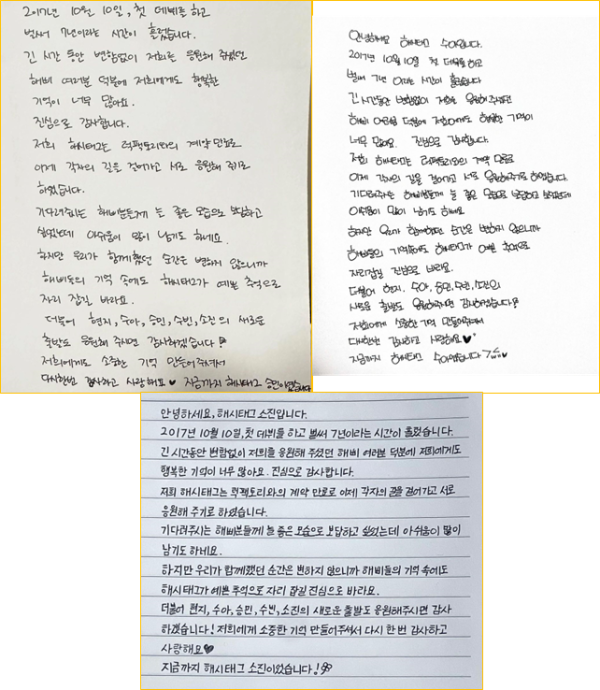 2017년 10월 10일, 첫 데뷔를 하고
벌써 7년이라는 시간이 흘렀습니다.
긴 시간 동안 변함없이 저희를 응원해 주셨던
해삐 여러분 덕분에 저희에게도 행복한
기억이 너무 많아요.
진심으로 감사합니다.
저희 해시태그는 럭팩토리와의 계약 만료로
이제 각자의 길을 걸어가고 서로 응원해 주기로
하였습니다.
기다려주시는 해삐분들께 늘 좋은 모습으로 보답하고
싶었는데 아쉬움이 많이 남기도 하네요.
하지만 우리가 함께했던 순간은 변하지 않으니까
해삐들의 기억 속에도 해시태그가 예쁜 추억으로
자리 잡길 바라요.
더불어 현지, 수아, 승민, 수빈, 소진의 새로운
출발도 응원해 주시면 감사하겠습니다
저희에게도 소중한 기억 만들어주셔서
다시한번 감사하고 사랑해요 ♥ 지금까지 해시태그 승민이었습니다
안녕하세요 해시태그 수아입니다.
2017년 10월 10일 첫 데뷔를 하고
벌써 7년 이라는 시간이 흘렀습니다
긴 시간동안 변함없이 저희를 응원해주셨던
해삐 여러분 덕분에 저희에게도 행복한 기억이
너무 많아요. 진심으로 감사합니다.
저희 해시태그는 럭팩토리와의 계약 만료로
이제 각자의 길을 걸어가고 서로 응원해주기로 하였습니다.
기다려주시는 해삐분들께 늘 좋은 모습으로 보답하고 싶었는데
아쉬움이 많이 남기도 하네요
하지만 우리가 함께했던 순간은 변하지 않으니까
해삐들의 기억속에도 해시태그가 예쁜 추억으로
자리잡길 진심으로 바라요.
더불어 현지, 수아, 승민, 수빈, 소진의
새로운 출발도 응원해주시면 감사하겠습니다
저희에게 소중한 기억 만들어주셔서
다시한번 감사하고 사랑해요♥
지금까지 해시태그 수아였습니다
안녕하세요, 해시태그 소진입니다.
2017년 10월 10일, 첫 데뷔를 하고 벌써 7년이라는 시간이 흘렀습니다.
긴 시간동안 변함없이 저희를 응원해 주셨던 해삐 여러분 덕분에 저희에게도
행복한 기억이 너무 많아요. 진심으로 감사합니다.
저희 해시태그는 럭팩토리와의 계약 만료로 이제 각자의 길을 걸어가고 서로
응원해 주기로 하였습니다.
기다려주시는 해삐분들께 늘 좋은 모습으로 보답하고 싶었는데 아쉬움이 많이
남기도 하네요.
하지만 우리가 함께했던 순간은 변하지 않으니까 해삐들의 기억 속에도
해시태그가 예쁜 추억으로 자리 잡길 진심으로 바라요.
더불어 현지, 수아, 승민, 수빈, 소진의 새로운 출발도 응원해주시면 감사
하겠습니다! 저희에게 소중한 기억 만들어주셔서 다시 한 번 감사하고
사랑해요♥
지금까지 해시태그 소진이었습니다!